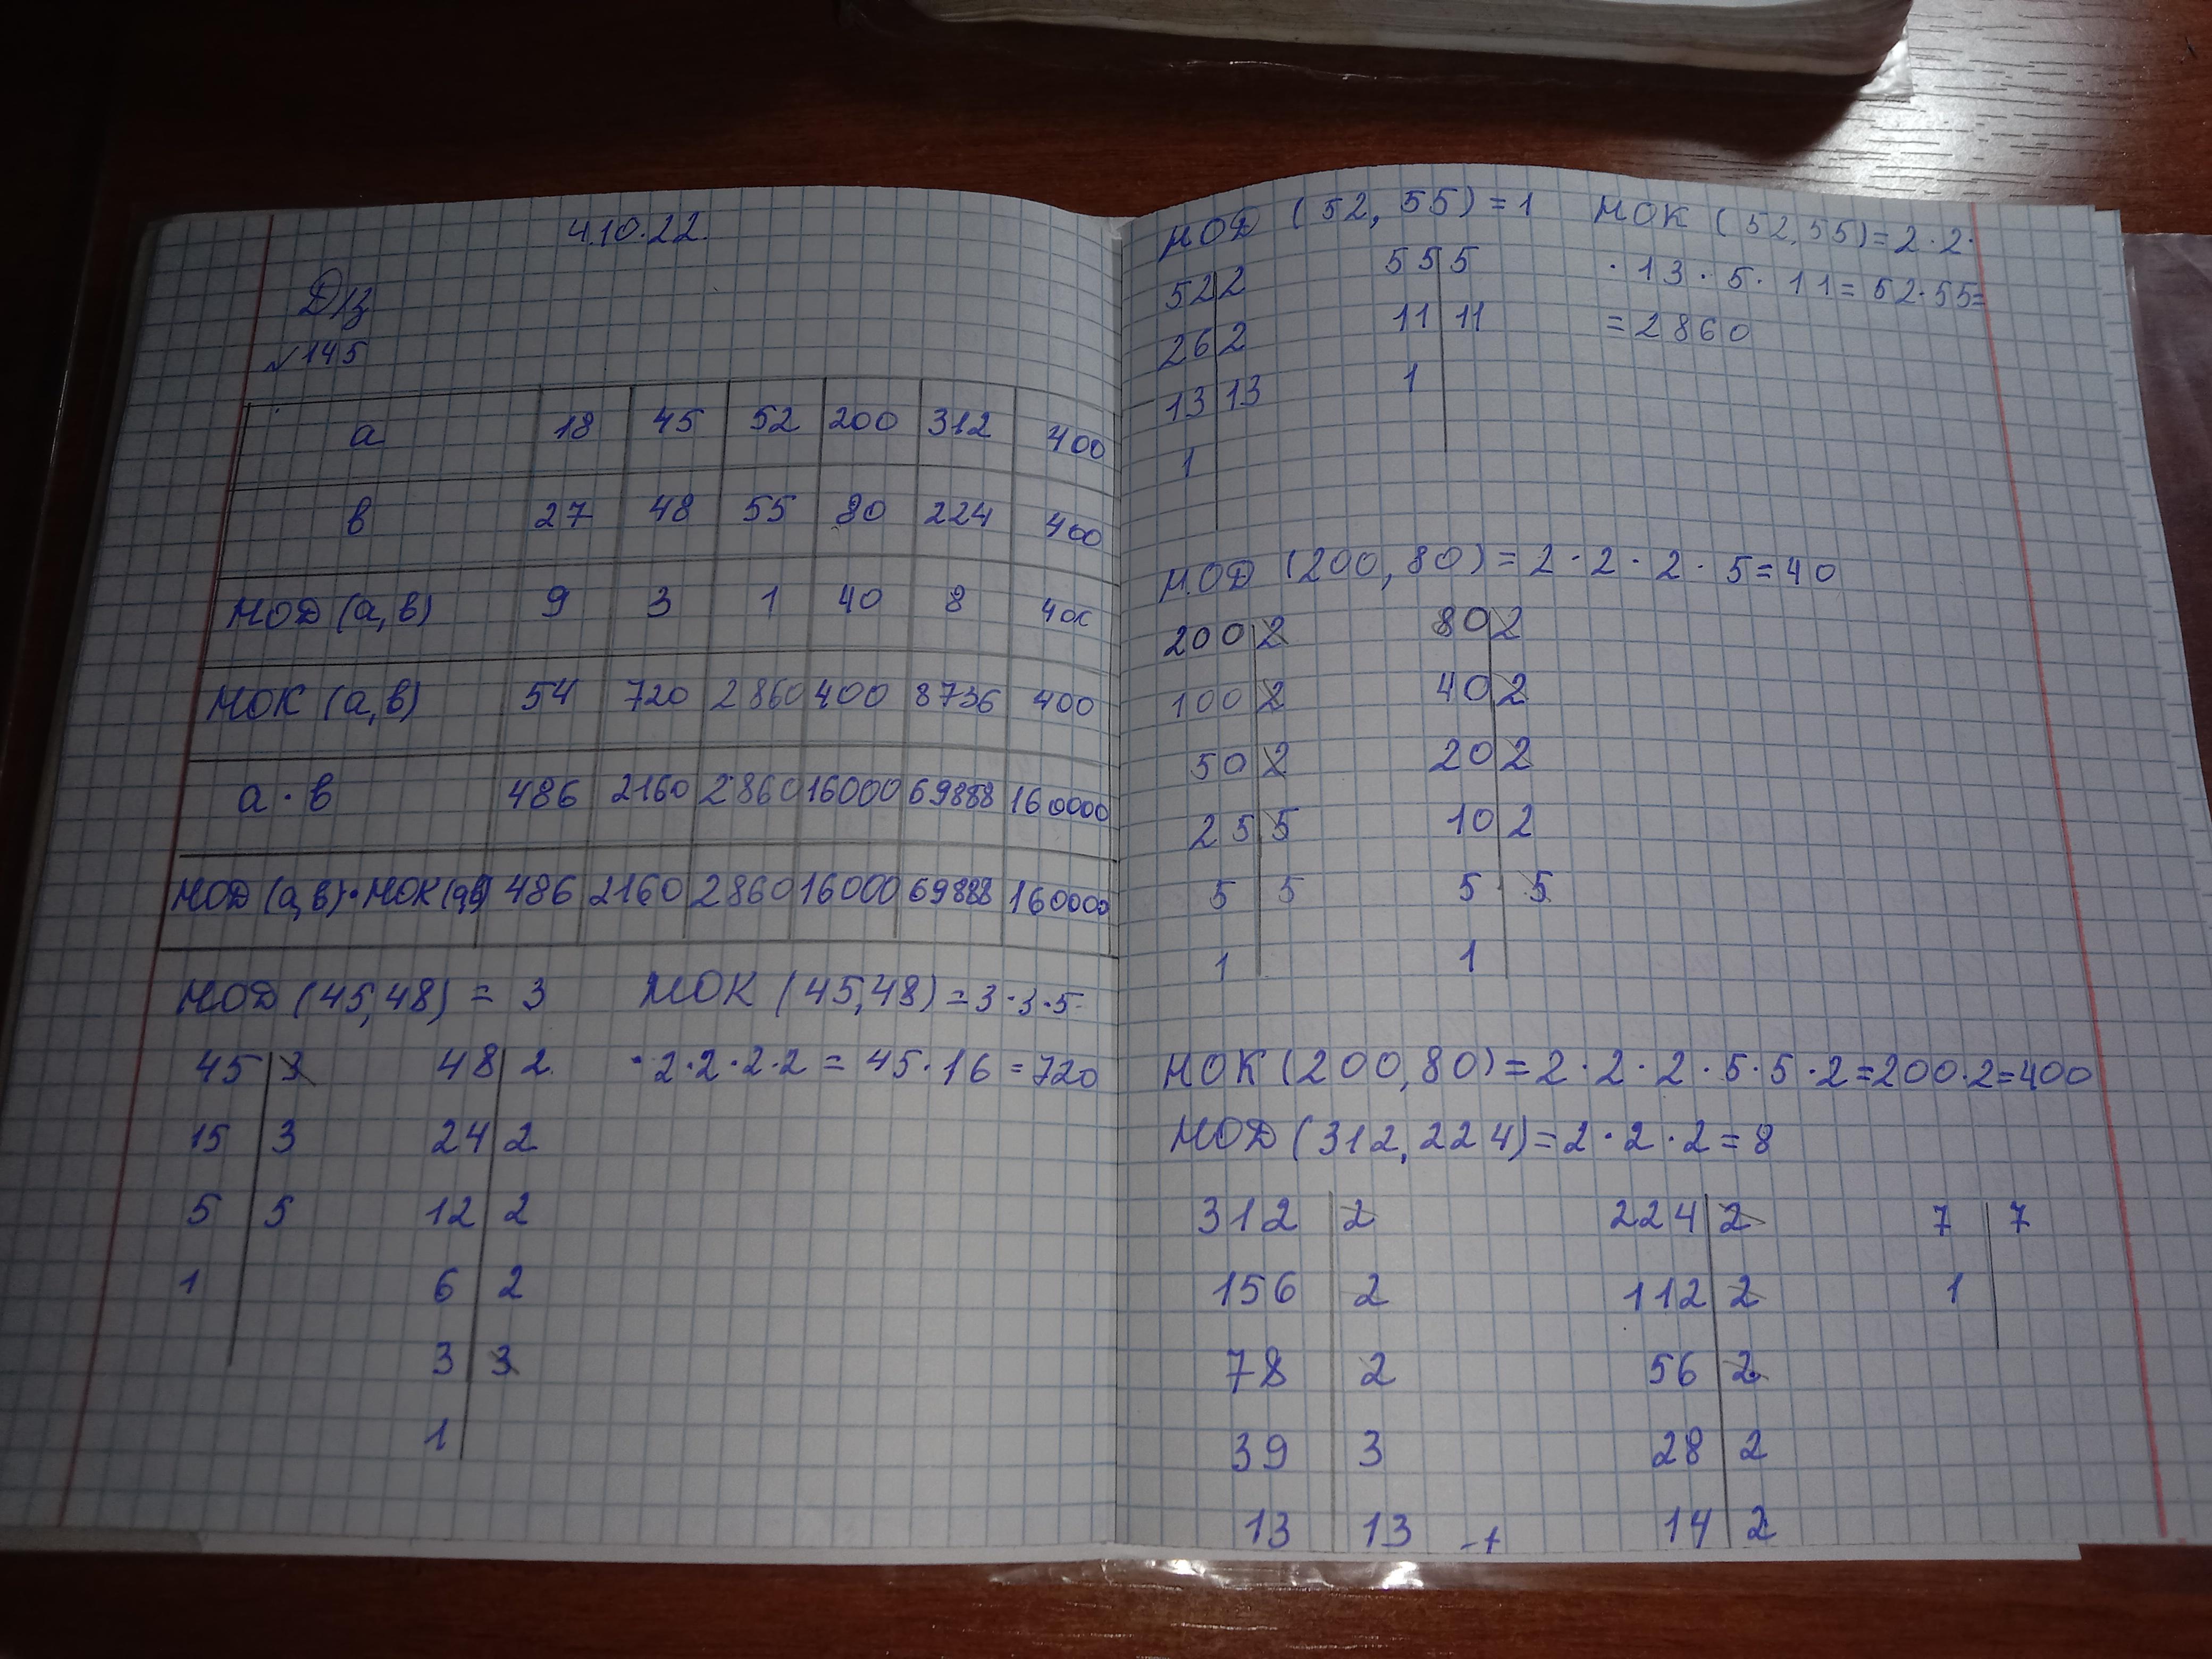 4.10.22.
Д/з
№145
а 18 45 52 200 312 400
в 27 48 55 80 224 400
НОД (а,в) 9 3 1 40 8 400
НОК (а,в) 54 720 2860 400 8736 400
а · в 486 2160 2860 16000 69888 160000
НОД (а,в) · НОК (а,в) 486 2160 2860 16000 69888 160000
НОД (45,48) = 3 НОК (45,48) = 3·3·5·
45 3 48 2 ·2·2·2·2 = 45·16 = 720
15 3 24 2
5 5 12 2
1 6 2
3 3
1
НОД (52, 55) = 1 НОК (52,55) = 2·2·
52 2 55 5 ·13·5·11 = 52·55=
26 2 11 11 =2860
13 13 1
1
НОД (200,80) = 2·2·2·5=40
200 2 80 2
100 2 40 2
50 2 20 2
25 5 10 2
5 5 5 5
1 1
НОК (200,80) = 2·2·2·5·5·2=200·2=400
НОД (312,224) = 2·2·2=8
312 2 224 2 7 7
156 2 112 2 1
78 2 56 2
39 3 28 2
13 13 14 2